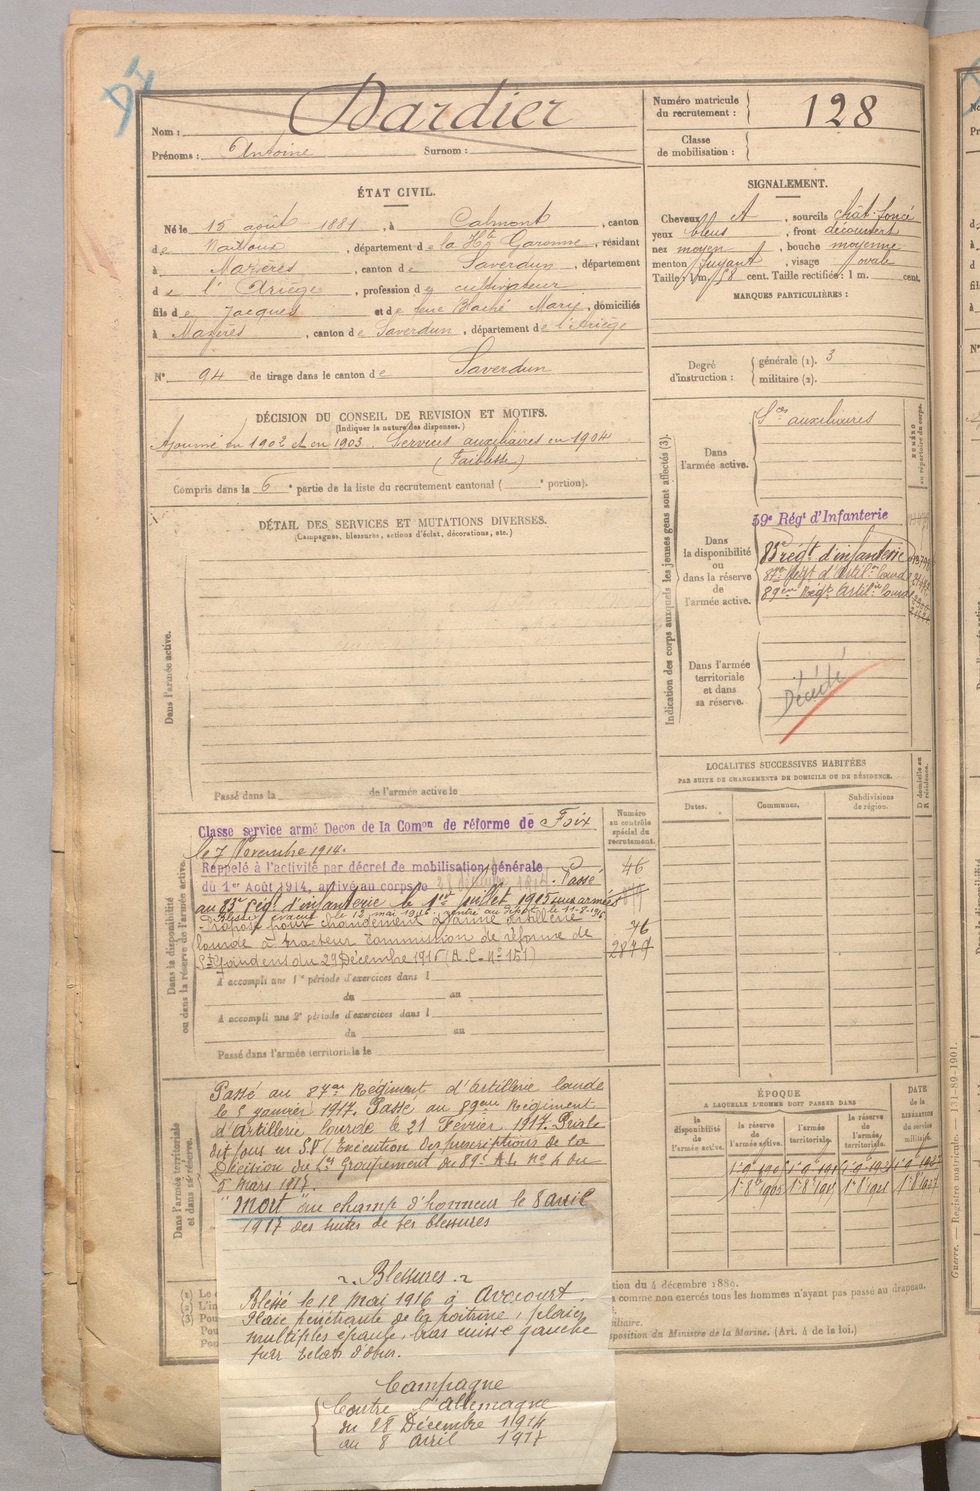 94
Nom : Dardier
Prénoms : Antoine Surnom :
Numéro matricule du recrutement : 128
Classe de mobilisation :
ÉTAT CIVIL.
Né le 15 août 1881, à Calmont, canton
de Nailloux, département de la Hte Garonne, résidant
à Mazères, canton de Saverdun, département
de l'Ariège, profession de cultivateur
fils de Jacques et de Marie, domiciliés
à Mazères, canton de Saverdun, département de l'Ariège
N° 94 de tirage dans le canton de Saverdun
SIGNALEMENT.
Cheveux et, sourcils chât-foncé
yeux bleus, front découvert
nez moyen, bouche moyenne
menton fuyant, visage ovale
Taille : 1 m. 58 cent. Taille rectifiée : 1 m. cent.
MARQUES PARTICULIÈRES :
Degré d'instruction : générale (1). 3
militaire (2).
DÉCISION DU CONSEIL DE REVISION ET MOTIFS.
(Indiquer la nature des dispenses.)
Ajourné en 1902 et en 1903. Services auxiliaires en 1904
(Faiblesse)
Compris dans la 6e partie de la liste du recrutement cantonal ( e portion).
DÉTAIL DES SERVICES ET MUTATIONS DIVERSES.
(Campagnes, blessures, actions d'éclat, décorations, etc.)
Dans l'armée active.
Passé dans la de l'armée active le
Indication des corps auxquels les jeunes gens sont affectés (3).
Dans l'armée active.
Sces auxiliaires
Dans la disponibilité ou dans la réserve de l'armée active.
59e Régt d'Infanterie
83e régt d'infanterie
87me Régt d'Artilie lourde
89ème Régt Artilie lourde
Dans l'armée territoriale et dans sa réserve.
Décédé
LOCALITÉS SUCCESSIVES HABITÉES
PAR SUITE DE CHANGEMENTS DE DOMICILE OU DE RÉSIDENCE.
Dates. Communes. Subdivisions de région.
Dans la disponibilité ou dans la réserve de l'armée active.
Numéro au contrôle spécial du recrutement.
Classe service armé Decon de la Comon de réforme de Foix
le 7 Novembre 1914.
Rappelé à l'activité par décret de mobilisation générale
du 1er Août 1914, arrivé au corps le Passé
au 83e régt d'infanterie le 1er juillet 1915 aux armées
Blessé évacué le 12 mai 1916. rentré au dépôt le 11-8-1916
Proposé pour changement d'arme artillerie
lourde à tracteur Commission de réforme de
St Gaudens du 29 Décembre 1916 (A.C. N° 151)
46
76
2847
A accompli une 1re période d'exercices dans l
du au
A accompli une 2e période d'exercices dans l
du au
Passé dans l'armée territoriale le
Dans l'armée territoriale et dans sa réserve.
Passé au 87me Régiment d'artillerie lourde
le 8 janvier 1917. Passé au 89ème Régiment
d'artillerie lourde le 21 Février 1917.
(Exécution des prescriptions de la
Décision du Groupement du 89e A.L. n° 4 du
5 Mars 1917.
"Mort" au champ d'honneur le 8 avril
1917 des suites de ses blessures
ÉPOQUE
A LAQUELLE L'HOMME DOIT PASSER DANS
la disponibilité de l'armée active. la réserve de l'armée active. l'armée territoriale. la réserve de l'armée territoriale.
DATE de la LIBÉRATION du service militaire.
Blessures
Blessé le 12 Mai 1916 à Avocourt.
Plaie pénétrante de la poitrine, plaies
multiples épaule, bras cuisse gauche
par éclats d'obus.
Campagne
Contre l'allemagne
du 28 Décembre 1914
au 8 Avril 1917
tion du 4 décembre 1889.
comme non exercés tous les hommes n'ayant pas passé au drapeau.
sposition du Ministre de la Marine. (Art. 4 de la loi.)
Guerre. — Registre matricule. — 131-89-1901.